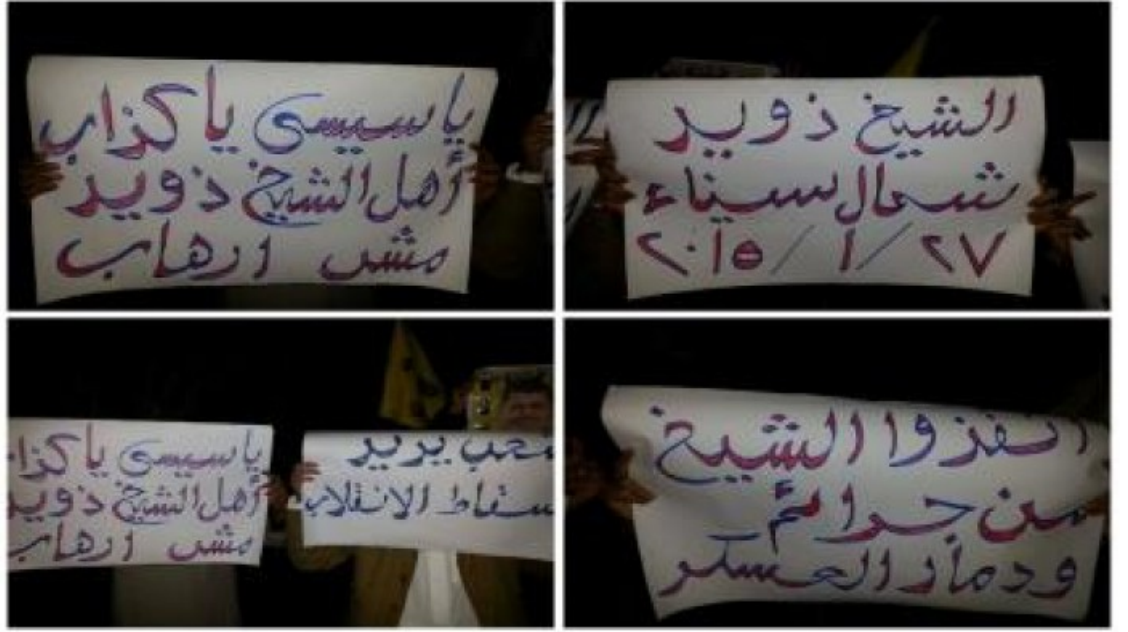 يا سيسى يا كزاب
أهل الشيخ ذويد
مش ارهاب
الشيخ ذويد
شمال سيناء
٢٧/١/٢٠١٥
يا سيسى يا كزا
أهل الشيخ ذويد
مش ارهاب
شعب يريد
سقاط الانقلاب
انقذوا الشيخ
من جرائم
ودمار العسكر